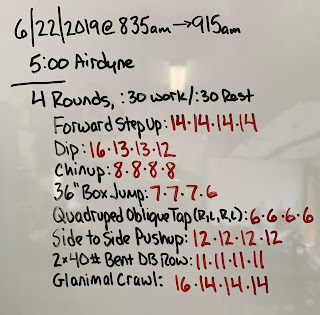 6/22/2019 @ 835am → 915am
5:00 Airdyne
4 Rounds, :30 work/:30 Rest
Forward Step Up: 14·14·14·14
Dip: 16·13·13·12
Chinup: 8·8·8·8
36" Box Jump: 7·7·7·6
Quadruped Oblique Tap (R,L,R,L): 6·6·6·6
Side to Side Pushup: 12·12·12·12
2×40# Bent DB Row: 11·11·11·11
Glanimal Crawl: 16·14·14·14